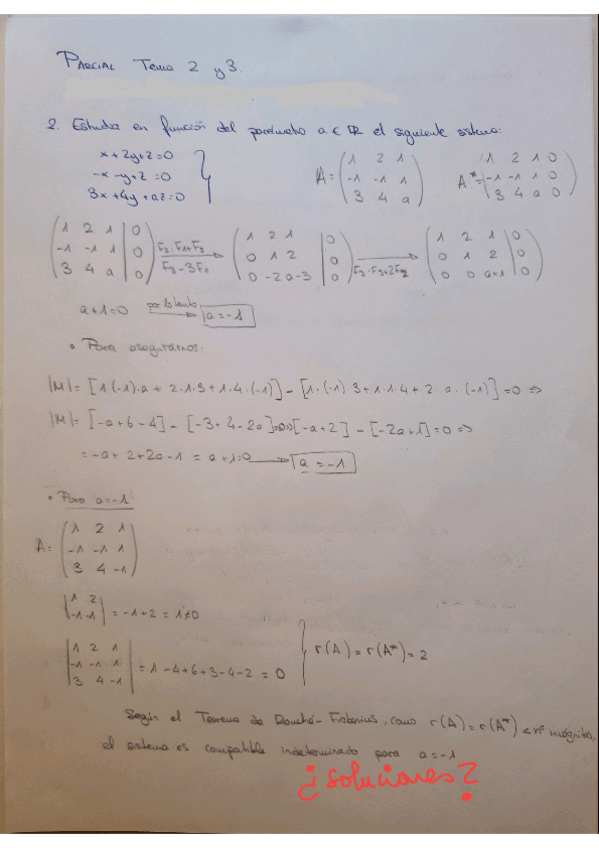 PARCIAL Tema 2 y 3.
2. Estudia en función del parámetro a ∈ ℝ el siguiente sistema:
x + 2y + z = 0
-x - y + z = 0
3x + 4y + az = 0
A = (1 2 1
-1 -1 1
3 4 a)
A* = (1 2 1 0
-1 -1 1 0
3 4 a 0)
(1 2 1 | 0
-1 -1 1 | 0
3 4 a | 0)
F2 · F1+F2
F3-3F1
(1 2 1 | 0
0 1 2 | 0
0 -2 a-3 | 0)
F3 · F3+2F2
(1 2 1 | 0
0 1 2 | 0
0 0 a+1 | 0)
a+1=0 por lo tanto → a=-1
• Para asegurarnos:
|M| = [1·(-1)·a + 2·1·3 + 1·4·(-1)] - [1·(-1)·3 + 1·1·4 + 2·a·(-1)] = 0 ⇒
|M| = [-a+6-4] - [-3+4-2a] = 0 ⇒ [-a+2] - [-2a+1] = 0 ⇒
= -a + 2 + 2a - 1 = a+1=0 → a = -1
• Para a=-1
A = (1 2 1
-1 -1 1
3 4 -1)
|1 2
-1 -1| = -1+2 = 1≠0
|1 2 1
-1 -1 1
3 4 -1| = 1-4+6+3-4-2 = 0
r(A) = r(A*) = 2
Según el Teorema de Rouché-Frobenius, como r(A) = r(A*) < nº incógnitas,
el sistema es compatible indeterminado para a=-1
¿soluciones?